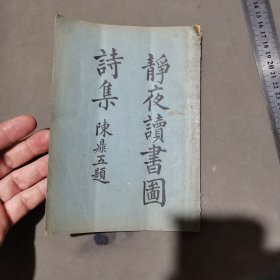 靜夜讀書圖
詩集
陳鼎五題